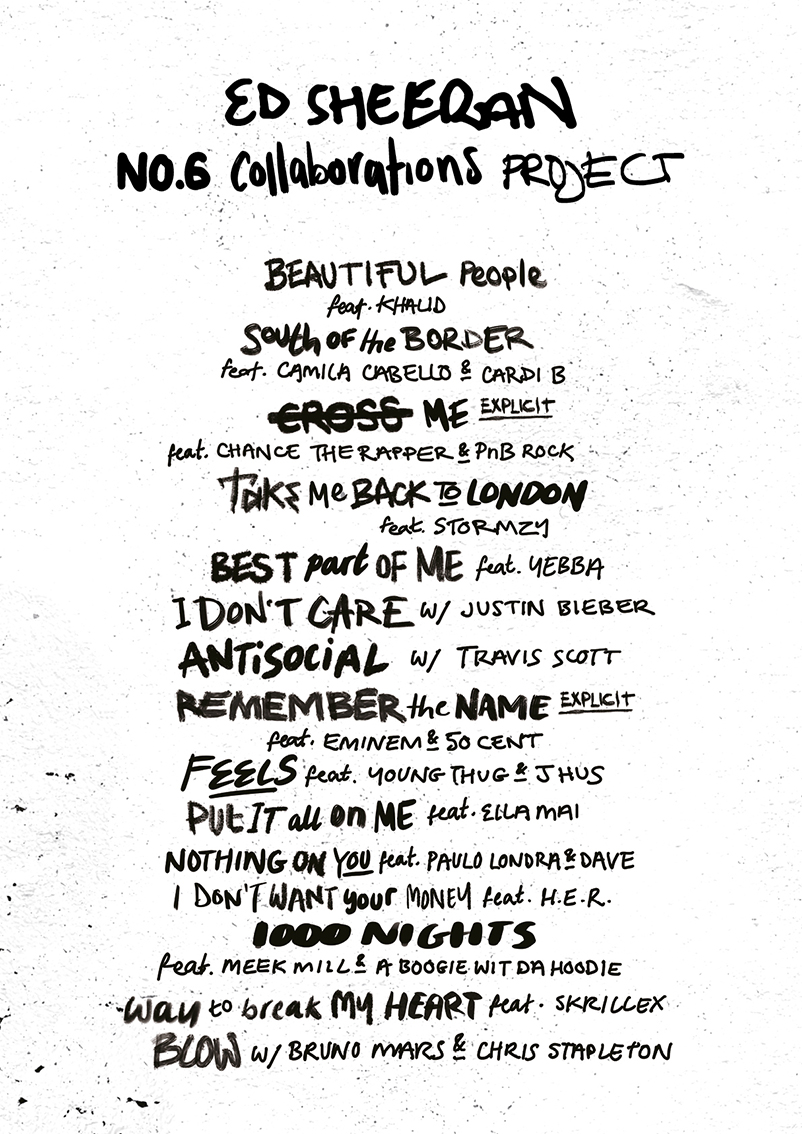 ED SHEERAN
NO.6 Collaborations PROJECT
BEAUTIFUL People
feat. KHALID
South OF the BORDER
feat. CAMILA CABELLO & CARDI B
CROSS ME EXPLICIT
feat. CHANCE THE RAPPER & PnB ROCK
Take Me BACK TO LONDON
feat. STORMZY
BEST part OF ME feat. YEBBA
I DON'T CARE w/ JUSTIN BIEBER
ANTiSOCiAL w/ TRAVIS SCOTT
REMEMBER the NAME EXPLICIT
feat. EMINEM & 50 CENT
FEELS feat. YOUNG THUG & J HUS
PUt IT all on ME feat. ELLA MAI
NOTHING ON YOU feat. PAULO LONDRA & DAVE
I DON'T WANT your MONEY feat. H.E.R.
1000 NIGHTS
feat. MEEK MILL & A BOOGIE WIT DA HOODIE
way to break MY HEART feat. SKRILLEX
BLOW w/ BRUNO MARS & CHRIS STAPLETON